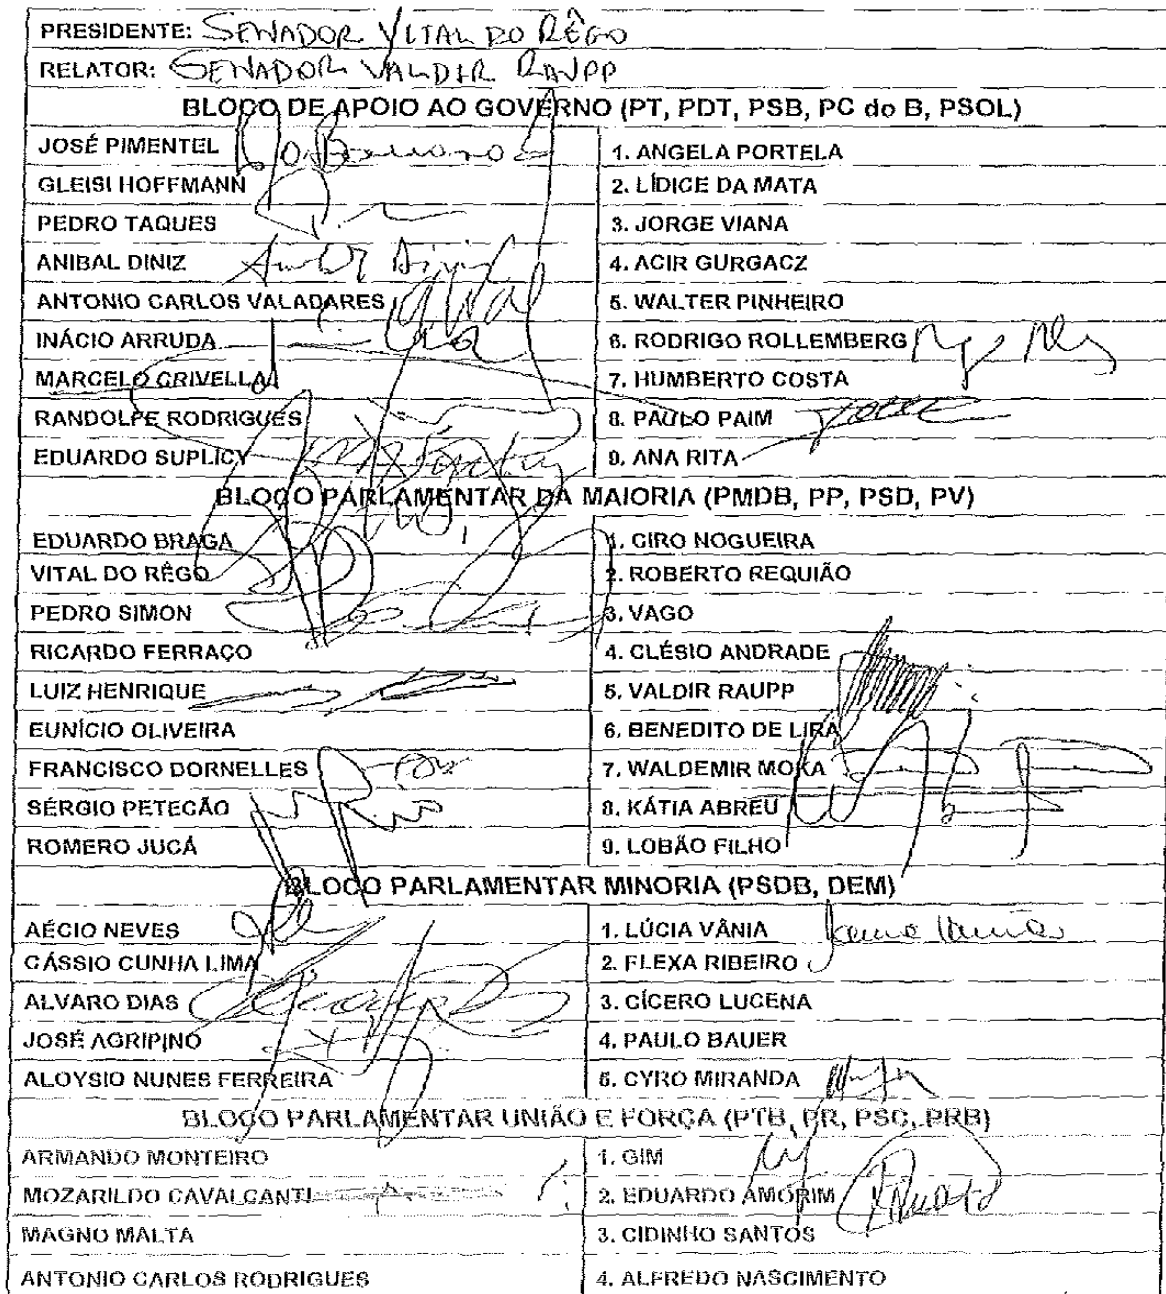 PRESIDENTE: SENADOR VITAL DO RÊGO
RELATOR: SENADOR VALDIR RAUPP
BLOCO DE APOIO AO GOVERNO (PT, PDT, PSB, PC do B, PSOL)
JOSÉ PIMENTEL 1. ANGELA PORTELA
GLEISI HOFFMANN 2. LÍDICE DA MATA
PEDRO TAQUES 3. JORGE VIANA
ANIBAL DINIZ Anibal Diniz 4. ACIR GURGACZ
ANTONIO CARLOS VALADARES 5. WALTER PINHEIRO
INÁCIO ARRUDA 6. RODRIGO ROLLEMBERG
MARCELO CRIVELLA 7. HUMBERTO COSTA
RANDOLFE RODRIGUES 8. PAULO PAIM
EDUARDO SUPLICY 9. ANA RITA
BLOCO PARLAMENTAR DA MAIORIA (PMDB, PP, PSD, PV)
EDUARDO BRAGA 1. CIRO NOGUEIRA
VITAL DO RÊGO 2. ROBERTO REQUIÃO
PEDRO SIMON 3. VAGO
RICARDO FERRAÇO 4. CLÉSIO ANDRADE
LUIZ HENRIQUE 5. VALDIR RAUPP
EUNÍCIO OLIVEIRA 6. BENEDITO DE LIRA
FRANCISCO DORNELLES 7. WALDEMIR MOKA
SÉRGIO PETECÃO 8. KÁTIA ABREU
ROMERO JUCÁ 9. LOBÃO FILHO
BLOCO PARLAMENTAR MINORIA (PSDB, DEM)
AÉCIO NEVES 1. LÚCIA VÂNIA
CÁSSIO CUNHA LIMA 2. FLEXA RIBEIRO
ALVARO DIAS 3. CÍCERO LUCENA
JOSÉ AGRIPINO 4. PAULO BAUER
ALOYSIO NUNES FERREIRA 5. CYRO MIRANDA
BLOCO PARLAMENTAR UNIÃO E FORÇA (PTB, PR, PSC, PRB)
ARMANDO MONTEIRO 1. GIM
MOZARILDO CAVALCANTI 2. EDUARDO AMORIM
MAGNO MALTA 3. CIDINHO SANTOS
ANTONIO CARLOS RODRIGUES 4. ALFREDO NASCIMENTO